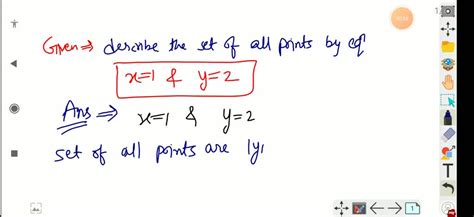 Given ⇒ describe the set of all points by eqn
x=1 & y=2
Ans ⇒ x=1 & y=2
set of all points are lyi
1
T